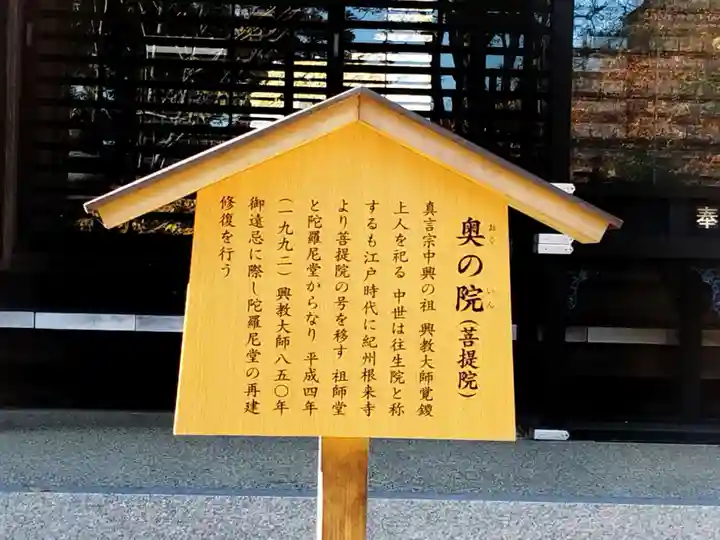 奥の院(菩提院)
おく いん
真言宗中興の祖 興教大師覚鑁
上人を祀る 中世は往生院と称
するも江戸時代に紀州根来寺
より菩提院の号を移す 祖師堂
と陀羅尼堂からなり 平成四年
(一九九二)興教大師八五〇年
御遠忌に際し陀羅尼堂の再建
修復を行う
奉